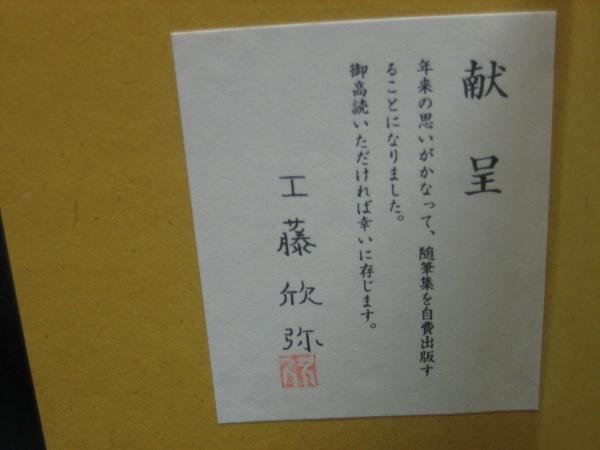 献呈
年来の思いがかなって、随筆集を自費出版す
ることになりました。
御高読いただければ幸いに存じます。
工藤欣弥